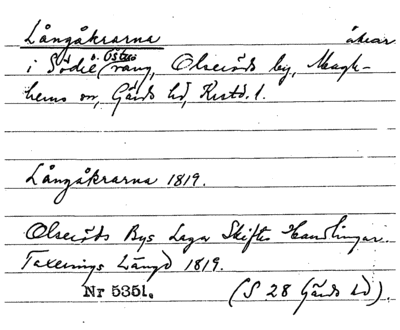 Långåkrarna åkrar
i Södre o. Östra vang, Olseröds by, Magle-
hems sn, Gärds hd, Krstd. l.
Långåkrarna 1819.
Olseröds Bys Laga Skiftes Handlingar.
Taxerings Längd 1819.
Nr 5351. (S 28 Gärds hd).